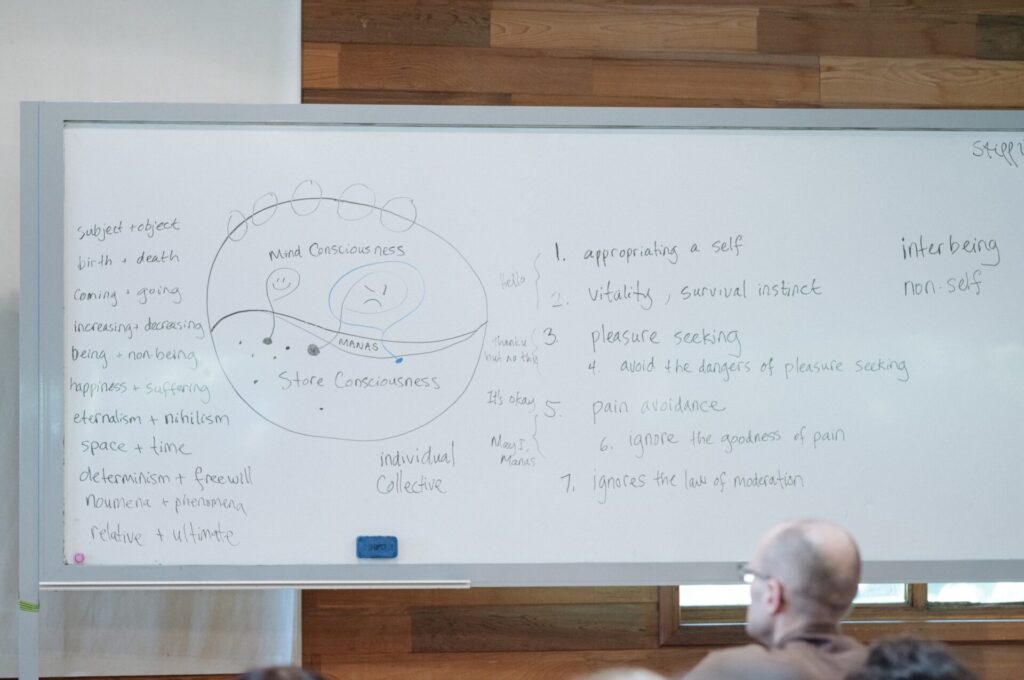 subject + object
birth + death
coming + going
increasing + decreasing
being + non-being
happiness + suffering
eternalism + nihilism
space + time
determinism + freewill
noumena + phenomena
relative + ultimate
Mind Consciousness
MANAS
Store Consciousness
individual
Collective
Hello
Thanks
but no thx
It's okay
May I,
Manas
1. appropriating a self
2. vitality, survival instinct
3. pleasure seeking
4. avoid the dangers of pleasure seeking
5. pain avoidance
6. ignore the goodness of pain
7. ignores the law of moderation
interbeing
non-self